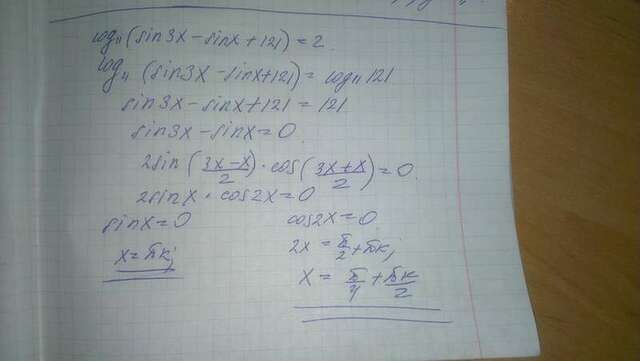 log₁₁(sin3x-sinx+121)=2
log₁₁(sin3x-sinx+121)=log₁₁121
sin3x-sinx+121=121
sin3x-sinx=0
2sin(3x-x/2)·cos(3x+x/2)=0
2sinx·cos2x=0
sinx=0 cos2x=0
x=πk; 2x=π/2+πk;
x=π/4+πk/2